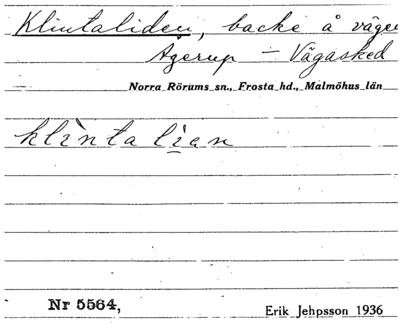 Klintaliden, backe å vägen
Agerup — Vägasked
Norra Rörums sn., Frosta hd., Malmöhus län
klìnta lian
Nr 5564,
Erik Jehpsson 1936